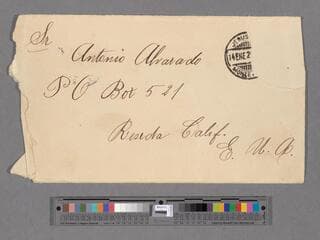 Sr. Antonio Alvarado
P.O Box 521
Reseda Calif.
E. U. A.
14 ENE 2